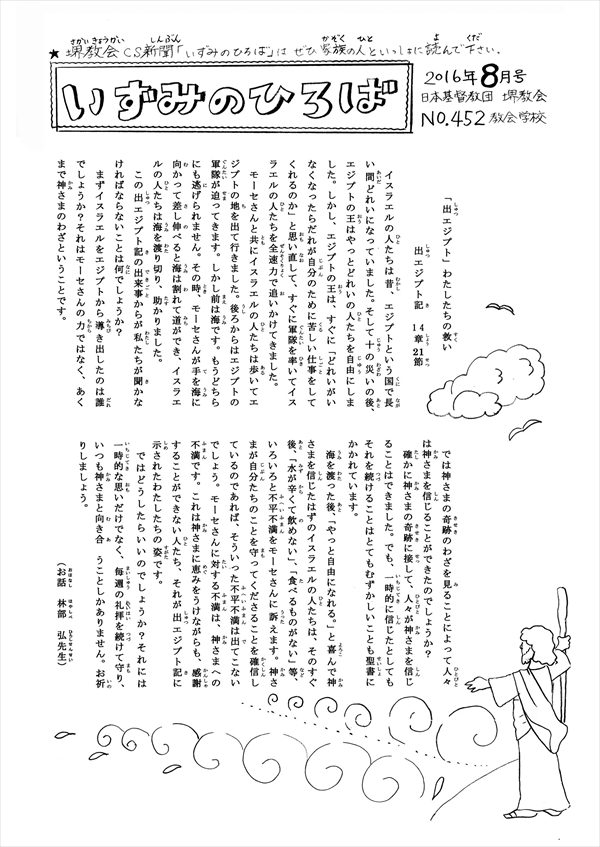 ★ 堺教会CS新聞「いずみのひろば」は ぜひ 家族の人といっしょに読んで下さい。
いずみのひろば
2016年8月号
日本基督教団 堺教会
NO.452 教会学校
「出エジプト」わたしたちの救い
出エジプト記 14章21節
イスラエルの人たちは昔、エジプトという国で長
い間どれいになっていました。そして十の災いの後、
エジプトの王はやっとどれいの人たちを自由にしま
した。しかし、エジプトの王は、すぐに「どれいがい
なくなったらだれが自分のために苦しい仕事をして
くれるのか」と思い直して、すぐに軍隊を率いてイス
ラエルの人たちを全速力で追いかけてきました。
モーセさんと共にイスラエルの人たちは歩いてエ
ジプトの地を出て行きました。後ろからはエジプトの
軍隊が迫ってきます。しかし前は海です。もうどちら
にも逃げられません。その時、モーセさんが手を海に
向かって差し伸べると海は割れて道ができ、イスラエ
ルの人たちは海を渡り切り、助かりました。
この出エジプト記の出来事からが私たちが聞かな
ければならないことは何でしょうか？
まずイスラエルをエジプトから導き出したのは誰
でしょうか？それはモーセさんの力ではなく、あく
まで神さまのわざということです。
では神さまの奇跡のわざを見ることによって人々
は神さまを信じることができたのでしょうか？
確かに神さまの奇跡に接して、人々が神さまを信じ
ることはできました。でも、一時的に信じたとしても
それを続けることはとてもむずかしいことも聖書に
かかれています。
海を渡った後、「やっと自由になれる。」と喜んで神
さまを信じたはずのイスラエルの人たちは、そのすぐ
後、「水が辛くて飲めない」、「食べるものがない」等、
いろいろと不平不満をモーセさんに訴えます。神さ
まが自分たちのことを守ってくださることを確信し
ているのであれば、そういった不平不満は出てこない
でしょう。モーセさんに対する不満は、神さまへの
不満です。これは神さまに恵みをうけながらも、感謝
することができない人たち、それが出エジプト記に
示されたわたしたちの姿です。
ではどうしたらいいのでしょうか？それには
一時的な思いだけでなく、毎週の礼拝を続けて守り、
いつも神さまと向き合うことしかありません。お祈
りしましょう。
（お話 林部 弘先生）